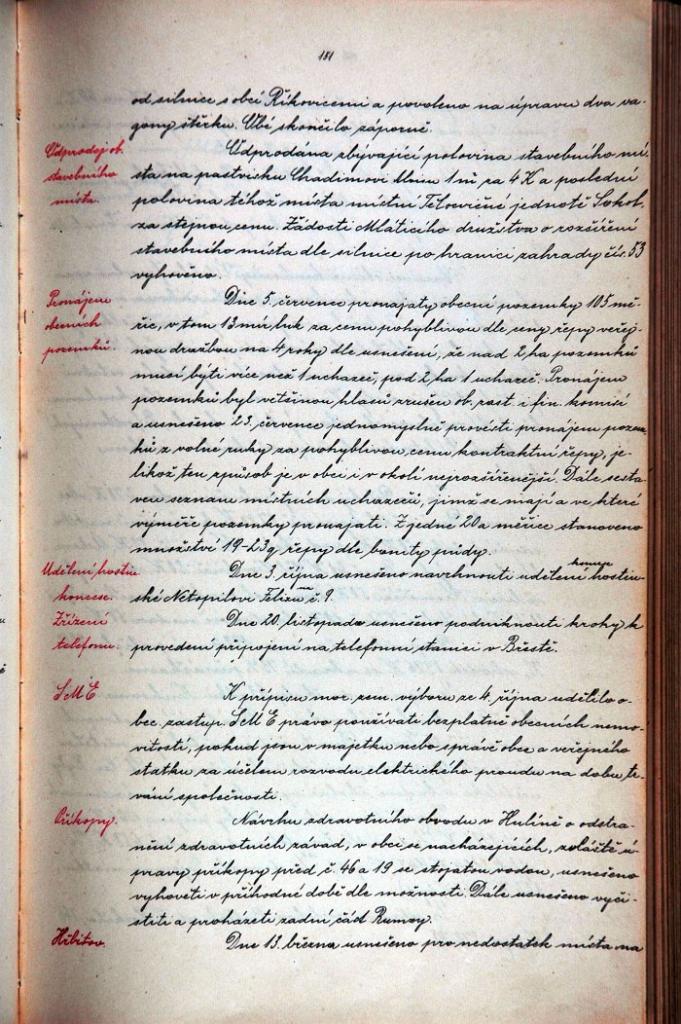 181
od silnice s obcí Říkovicemi a povoleno na úpravu dva va-
gony štěrku. Obé skončilo záporně.
Odprodej ob.
stavebního
místa.
Odprodána zbývající polovina stavebního mí-
sta na pastvisku Chadimovi Aloisu 1 m² za 4 K a poslední
polovina téhož místa místní Tělocvičné jednotě Sokol
za stejnou cenu. Žádosti Mláticího družstva o rozšíření
stavebního místa dle silnice po hranici zahrady čís. 53
vyhověno.
Pronájem
obecních
pozemků.
Dne 5. července pronajaty obecní pozemky 105 mě-
řic, v tom 13 mír. luk za cenu pohyblivou dle ceny řepy veřej-
nou dražbou na 4 roky dle usnešení, že nad 2 ha pozemků
musí býti více než 1 uchazeč, pod 2 ha 1 uchazeč. Pronájem
pozemků byl většinou hlasů zrušen ob. rast. i fin. komisí
a usnešeno 23. července jednomyslně provésti pronájem pozem-
ků z volné ruky za pohyblivou cenu kontraktní řepy, je-
likož ten způsob je v obci i v okolí nejrozšířenější. Dále sesta-
ven seznam místních uchazečů, jimž se mají a ve které
výměře pozemky pronajati. Z jedné 20 a měřice stanoveno
množství 19-23 q řepy dle bonity půdy.
Udělení hostin.
koncese.
Dne 3. října usnešeno navrhnouti udělení koncese hostin-
ské Netopilovi Felixu č. 9.
Zřízení
telefonu.
Dne 20. listopadu usnešeno podniknouti kroky k
provedení připojení na telefonní stanici v Břestě.
SME
K přípisu mor. zem. výboru ze 4. října udělilo o-
bec. zastup. SME právo používati bezplatně obecních nemo-
vitostí, pokud jsou v majetku nebo správě obce a veřejného
statku za účelem rozvodu elektrického proudu na dobu tr-
vání společnosti.
Příkopy.
Návrhu zdravotního obvodu v Hulíně o odstra-
nění zdravotních závad, v obci se nacházejících, zvláště ú-
pravy příkopy před č. 46 a 19 se stojatou vodou, usnešeno
vyhověti v příhodné době dle možnosti. Dále usnešeno vyči-
stiti a proházeti zadní část Rumzy.
Hřbitov.
Dne 13. března usnešeno pro nedostatek místa na